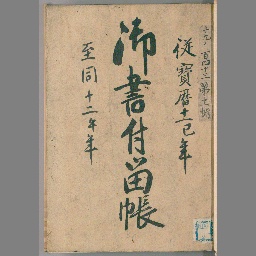 従寳暦十一巳年
御書付留帳
至同十二午年